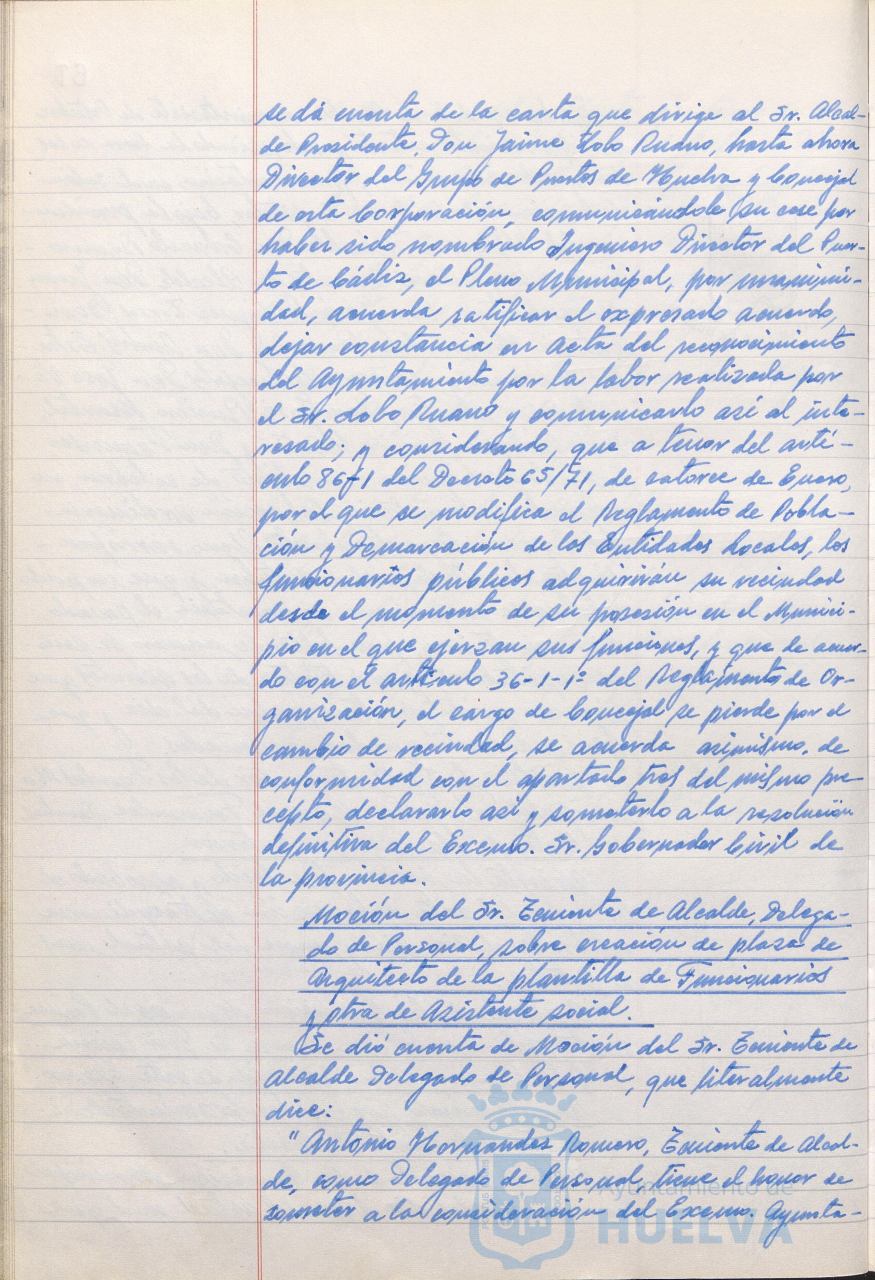 se dá cuenta de la carta que dirige al Sr. Alcal-
de Presidente, Don Jaime Lobo Ruano, hasta ahora
Director del Grupo de Puertos de Huelva y Concejal
de esta Corporación, comunicándole su cese por
haber sido nombrado Ingeniero Director del Puer-
to de Cádiz, el Pleno Municipal, por unanimi-
dad, acuerda ratificar el expresado acuerdo,
dejar constancia en Acta del reconocimiento
del Ayuntamiento por la labor realizada por
el Sr. Lobo Ruano y comunicarlo así al inte-
resado; y considerando, que a tenor del artí-
culo 86-1 del Decreto 65/71, de catorce de Enero,
por el que se modifica el Reglamento de Pobla-
ción y Demarcación de las Entidades Locales, los
funcionarios públicos adquirirán su vecindad
desde el momento de su posesión en el Munici-
pio en el que ejerzan sus funciones, y que de acuer-
do con el artículo 36-1-1º del Reglamento de Or-
ganización, el cargo de Concejal se pierde por el
cambio de vecindad, se acuerda asimismo, de
conformidad con el apartado tres del mismo pre-
cepto, declararlo así y someterlo a la resolución
definitiva del Excmo. Sr. Gobernador Civil de
la provincia.
Moción del Sr. Teniente de Alcalde, Delega-
do de Personal, sobre creación de plaza de
Arquitecto de la plantilla de Funcionarios
y otra de Asistente social.
Se dió cuenta de Moción del Sr. Teniente de
Alcalde Delegado de Personal, que literalmente
dice:
"Antonio Hernandez Romero, Teniente de Alcal-
de, como Delegado de Personal, tiene el honor de
someter a la consideración del Excmo. Ayunta-
Ayuntamiento de
HUELVA